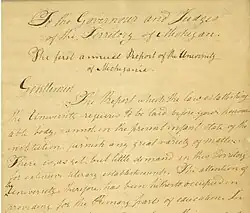 To the Governour and Judges
of the Territory of Michigan.
The first annual Report of the University
of Michigania.
Gentlemen
The Report which the law establishing
the University requires to be laid before your honour-
able body, cannot in the present infant state of the
institution, furnish any great variety of matter.
There is as yet, but little demand in this Territory
for extensive literary establishments. The attention of
the University therefore has been hitherto occupied in
providing for the primary parts of education. In